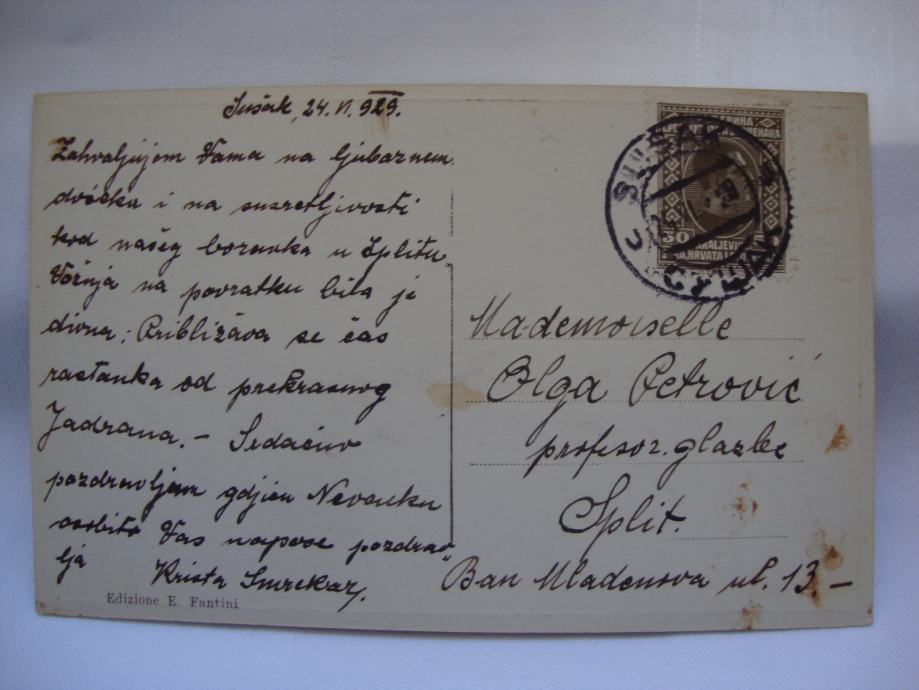 Sušak, 24. VI. 929.
Zahvaljujem Vama na ljubaznom
dočeku i na susretljivosti
kod našeg boravka u Splitu.
Vožnja na povratku bila je
divna. Približava se čas
rastanka od prekrasnog
Jadrana. –
pozdravljam gdjicu Nevenku
osobito Vas napose pozdrav
lja Krista Smrekar,
Edizione E. Fantini
SUŠAK
СУШАК
50
KRALJEVI
HRVATA
Mademoiselle
Olga Petrović
profesor. glazbe
Split.
Ban Mladenova ul. 13. –